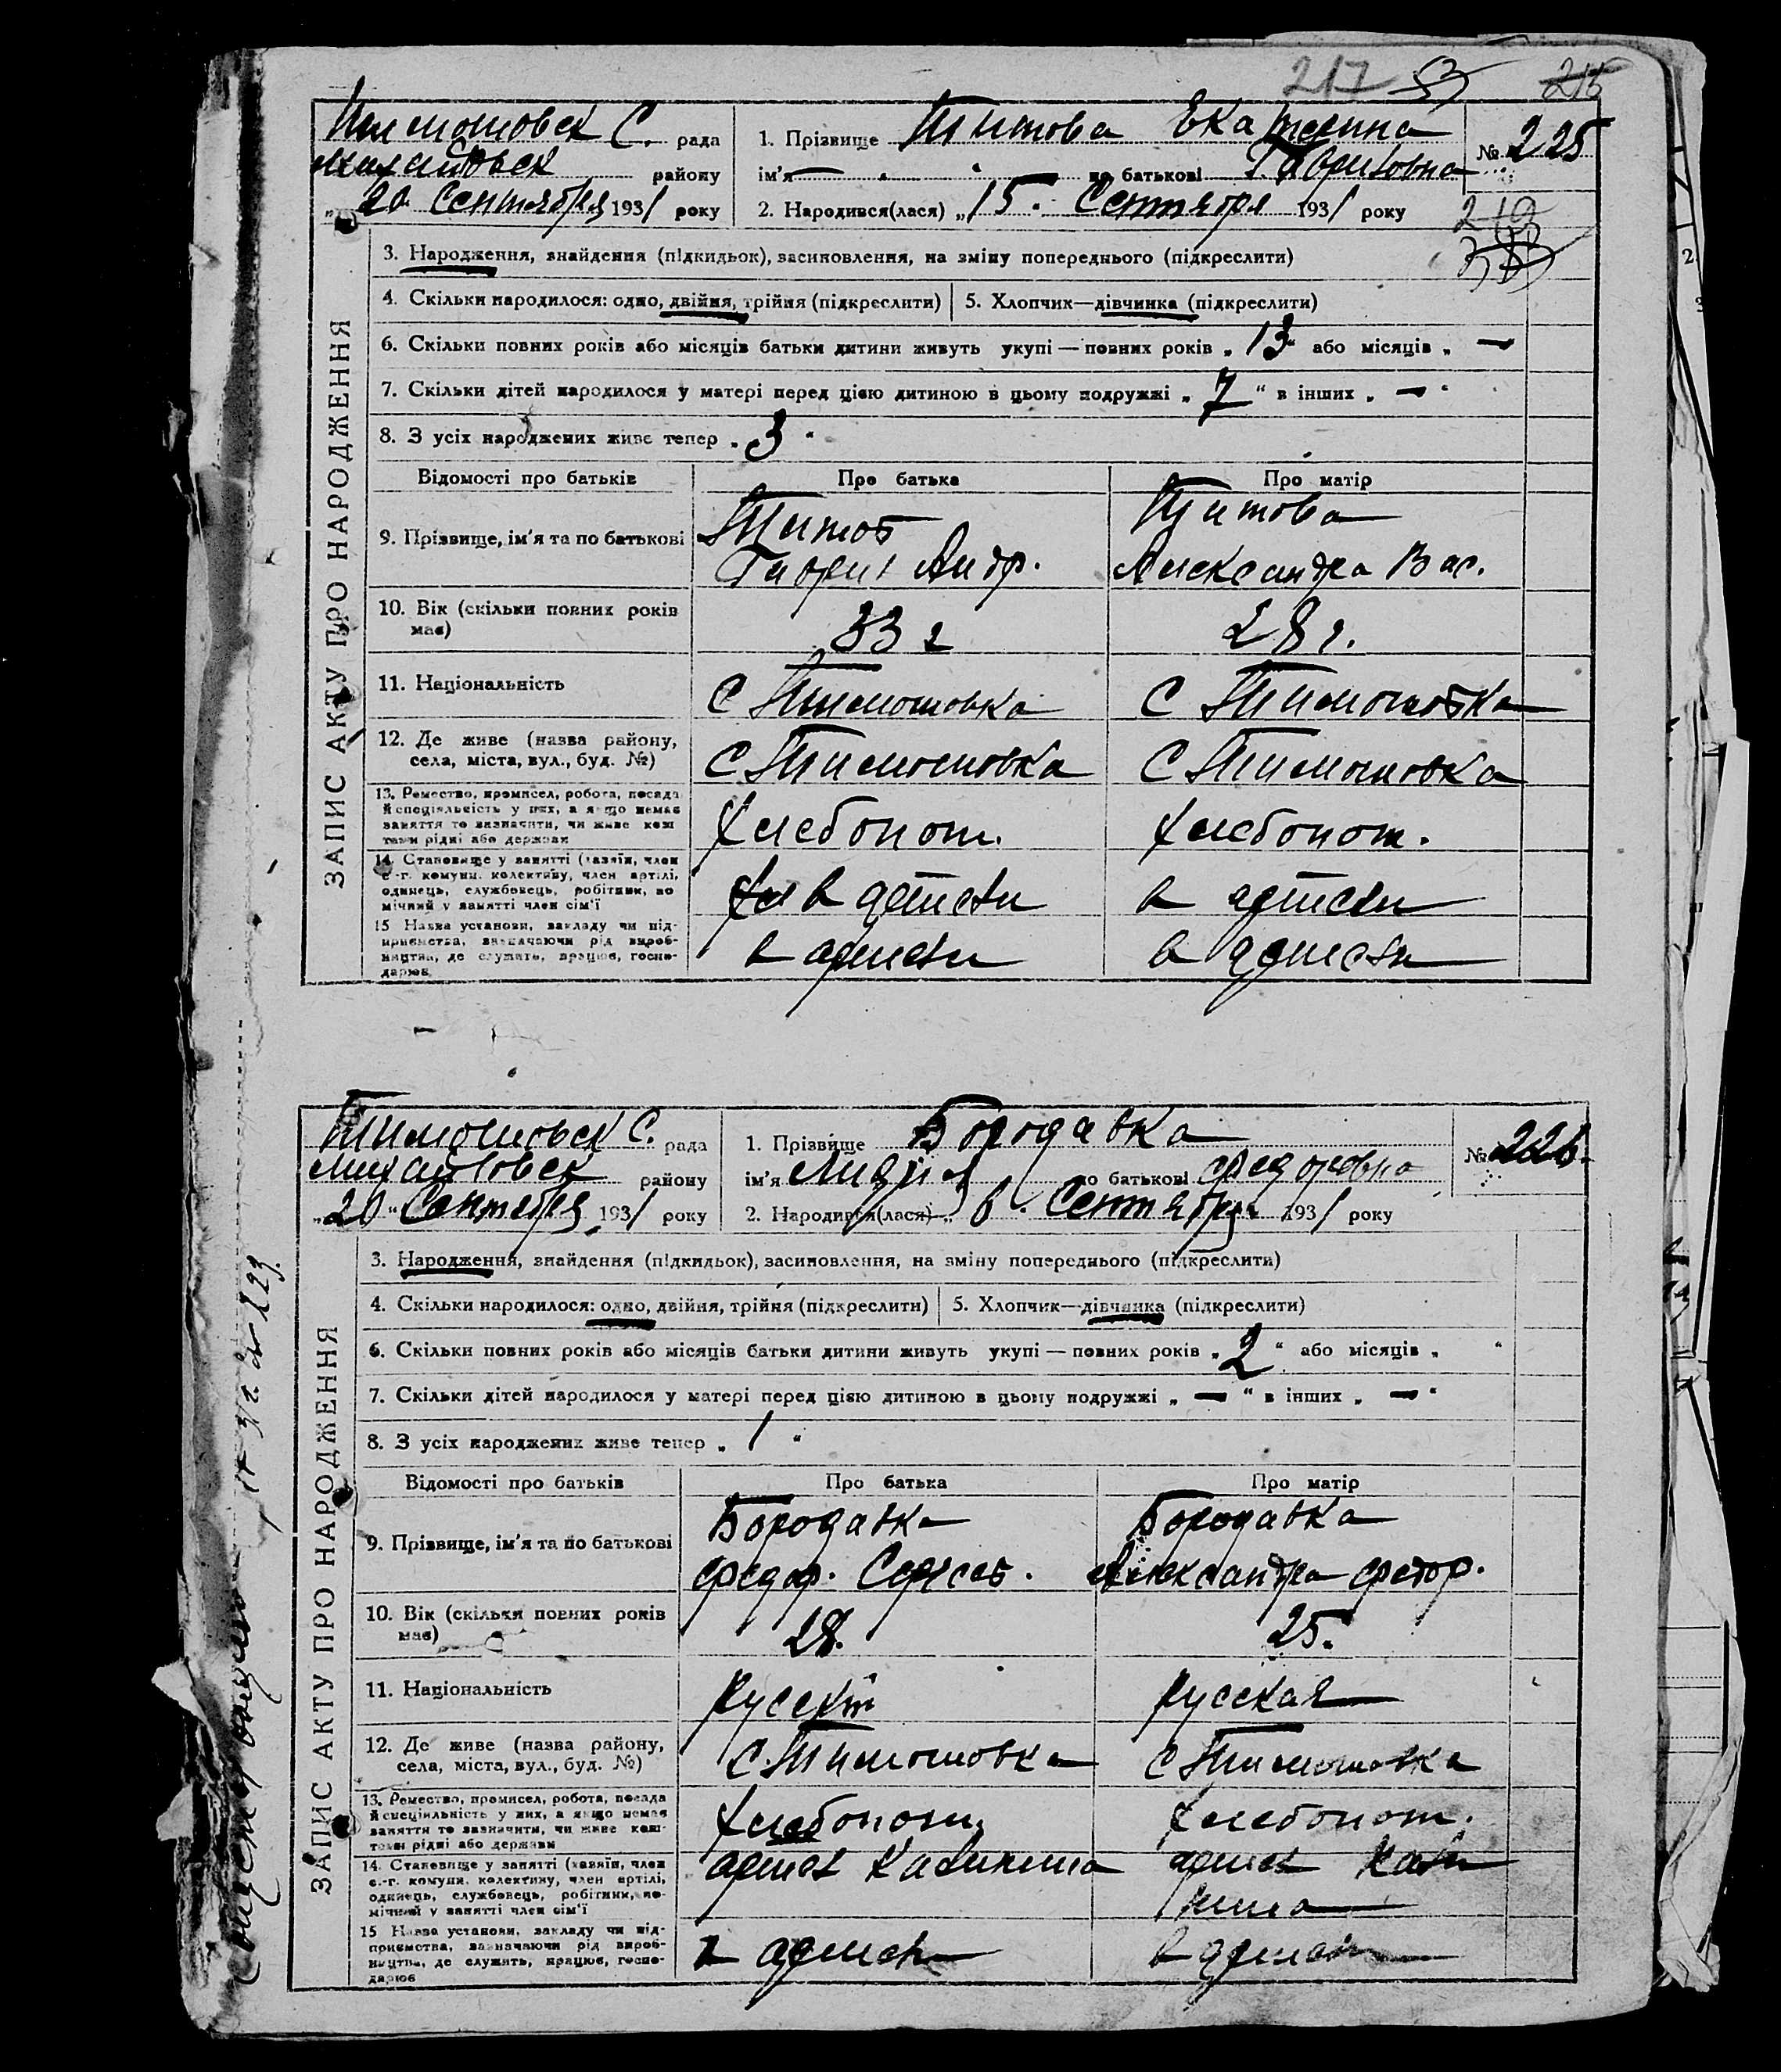 217 53 215
Тимошовск С. рада
Михайловск району
„20 Сентября 1931 року
1. Прізвище Титова Екатерина
ім'я — „ по батькові Гавриловна
2. Народився(лася) „15. Сентября 1931 року
№ 225
219
ЗАПИС АКТУ ПРО НАРОДЖЕННЯ
3. Народження, знайдення (підкидьок), засиновлення, на зміну попереднього (підкреслити)
4. Скільки народилося: одно, двійня, трійня (підкреслити) 5. Хлопчик—дівчинка (підкреслити)
6. Скільки повних років або місяців батьки дитини живуть укупі — повних років „ 13 “ або місяців „ —
7. Скільки дітей народилося у матері перед цією дитиною в цьому подружжі „ 7 “ в інших „ — “
8. З усіх народжених живе тепер „ 3 “
Відомості про батьків Про батька Про матір
9. Прізвище, ім'я та по батькові
Титов
Гаврил Андр.
Титова
Александра Вас.
10. Вік (скільки повних років має)
33 г
28 г.
11. Національність
С Тимошовка
С Тимошовка
12. Де живе (назва району,
села, міста, вул., буд. №)
С Тимошовка
С Тимошовка
13. Ремество, промисел, робота, посада
й спеціяльність у них, а якщо немає
заняття то зазначити, чи живе кош
тами рідні або держави
Хлебопаш.
Хлебопаш.
14. Становище у занятті (хазяїн, член
с.-г. комуни. колективу, член артілі,
одинець, службовець, робітник, по
мічний у занятті член сім'ї
в артели
в артели
15 Назва установи, закладу чи під-
приємства, визначаючи рід вироб-
ництва, де служить, працює, госпо-
дарює
в артели
в артели
Тимошовск С. рада
Михайловск району
„20“ Сентября 1931 року
1. Прізвище Бородавка
ім'я Лидия по батькові Федоровна
2. Народився(лася) „ 6. Сентября 1931 року
№ 226.
ЗАПИС АКТУ ПРО НАРОДЖЕННЯ
3. Народження, знайдення (підкидьок), засиновлення, на зміну попереднього (підкреслити)
4. Скільки народилося: одно, двійня, трійня (підкреслити) 5. Хлопчик—дівчинка (підкреслити)
6. Скільки повних років або місяців батьки дитини живуть укупі — повних років „ 2 “ або місяців „ “
7. Скільки дітей народилося у матері перед цією дитиною в цьому подружжі „ — “ в інших „ — “
8. З усіх народжених живе тепер „ 1 “
Відомості про батьків Про батька Про матір
9. Прізвище, ім'я та по батькові
Бородавка
Федор. Сергеев.
Бородавка
Александра Федор.
10. Вік (скільки повних років
має)
28.
25.
11. Національність
Русский
Русская
12. Де живе (назва району,
села, міста, вул., буд. №)
С. Тимошовка
С Тимошовка
13. Ремество, промисел, робота, посада
й спеціяльність у них, а якщо немає
заняття то зазначити, чи живе кош-
тами рідні або держави
Хлебопаш.
Хлебопаш.
14. Становище у занятті (хазяїн, член
с.-г. комуни. колективу, член артілі,
одинець, службовець, робітник, по-
мічний у занятті член сім'ї
артел Калинина
артел Кали
нина
15 Назва установи, закладу чи під-
приємства, зазначаючи рід вироб-
ництва, де служить, працює, госпо-
дарює
в артел
в артели